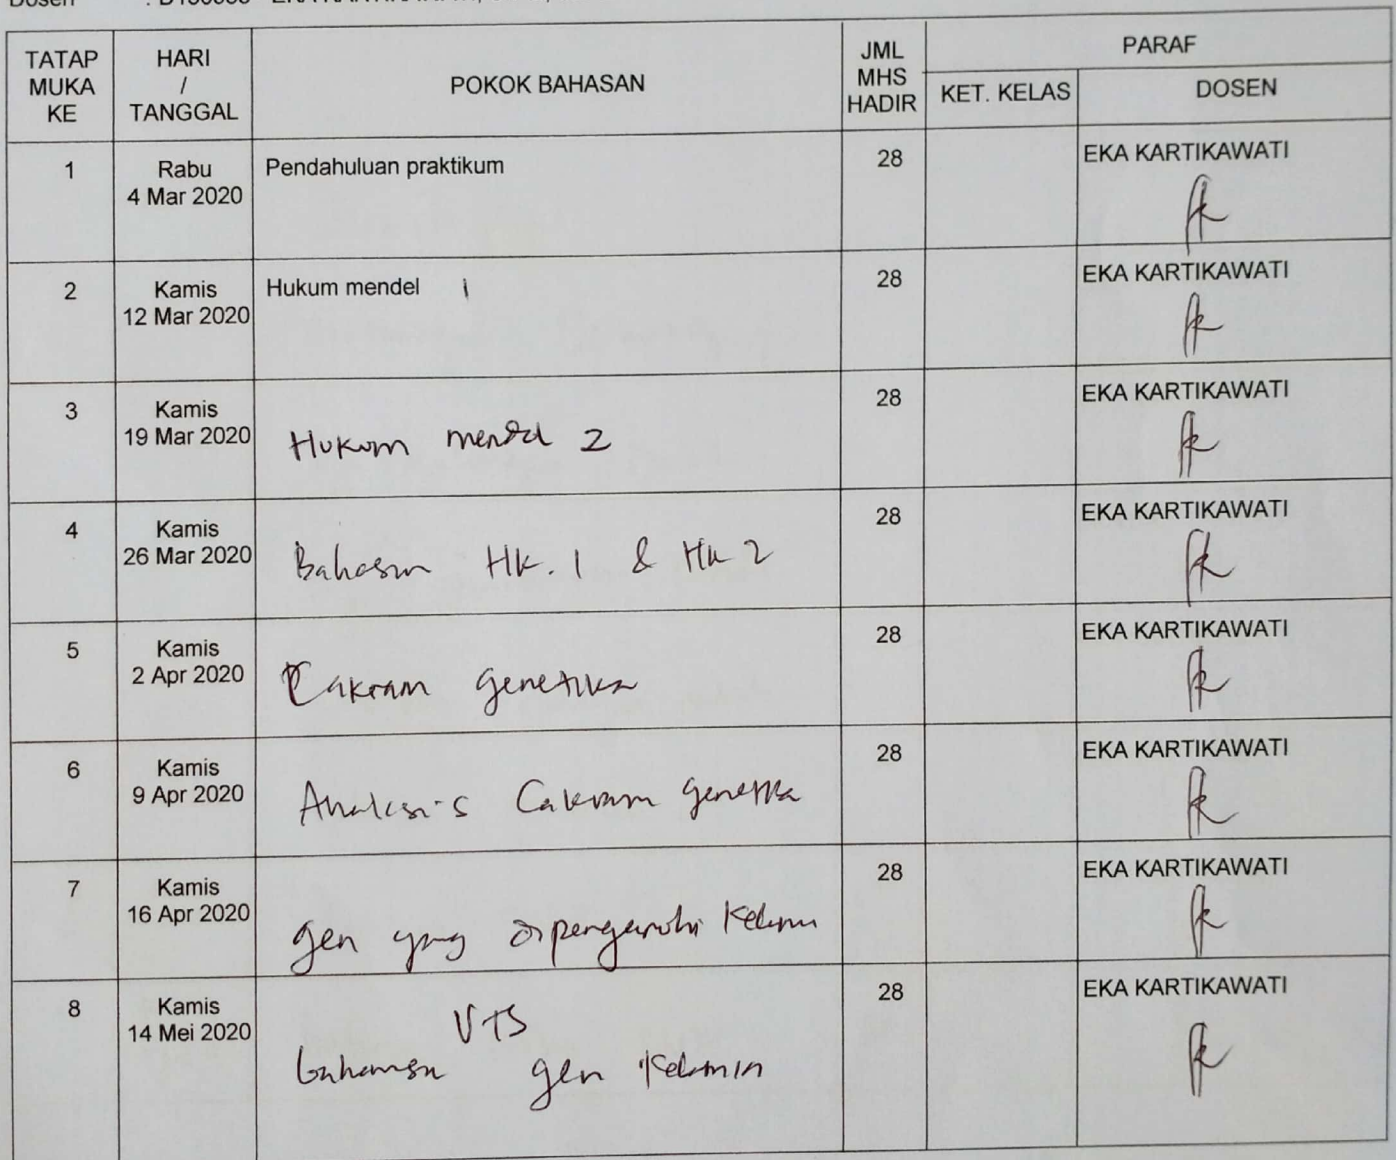 Dosen
TATAP MUKA KE HARI / TANGGAL POKOK BAHASAN JML MHS HADIR PARAF
KET. KELAS DOSEN
1 Rabu 4 Mar 2020 Pendahuluan praktikum 28 EKA KARTIKAWATI
2 Kamis 12 Mar 2020 Hukum mendel 1 28 EKA KARTIKAWATI
3 Kamis 19 Mar 2020 Hukum mendel 2 28 EKA KARTIKAWATI
4 Kamis 26 Mar 2020 Bahasan Hk. 1 & Hk 2 28 EKA KARTIKAWATI
5 Kamis 2 Apr 2020 Cakram genetika 28 EKA KARTIKAWATI
6 Kamis 9 Apr 2020 Analisis Cakram genetika 28 EKA KARTIKAWATI
7 Kamis 16 Apr 2020 gen yang dipengaruhi Kelamin 28 EKA KARTIKAWATI
8 Kamis 14 Mei 2020 UTS 28 EKA KARTIKAWATI
bahasan gen Kelamin